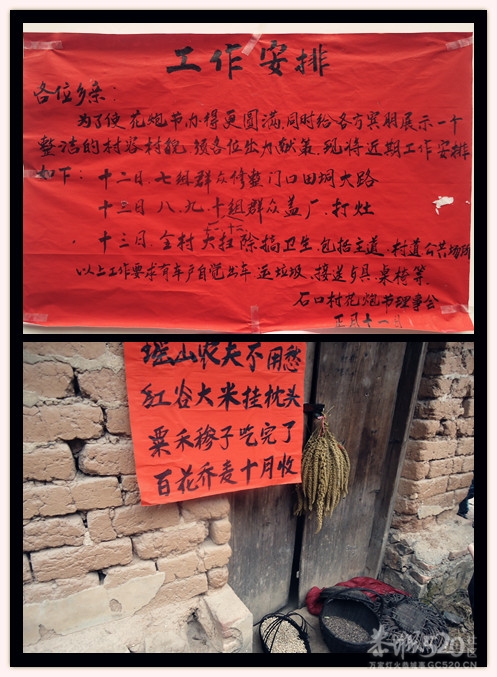 工作安排
各位乡亲：
为了使花炮节办得更圆满，同时给各方宾朋展示一个
整洁的村容村貌，须各位出力献策，现将近期工作安排
如下：十二日、七组群众修整门口田垌大路
十三日八、九、十组群众盖厂、打灶
十一、十二
十三日 全村大扫除搞卫生，包括主道、村道公共场所
以上工作要求有车户自觉出车运垃圾、接送与具、桌椅等.
石口村花炮节理事会
正月十一日
瑶山农夫不用愁
红谷大米挂枕头
粟禾穇子吃完了
百花乔麦十月收
恭城520社区
万家灯火恭城事GC520.CN